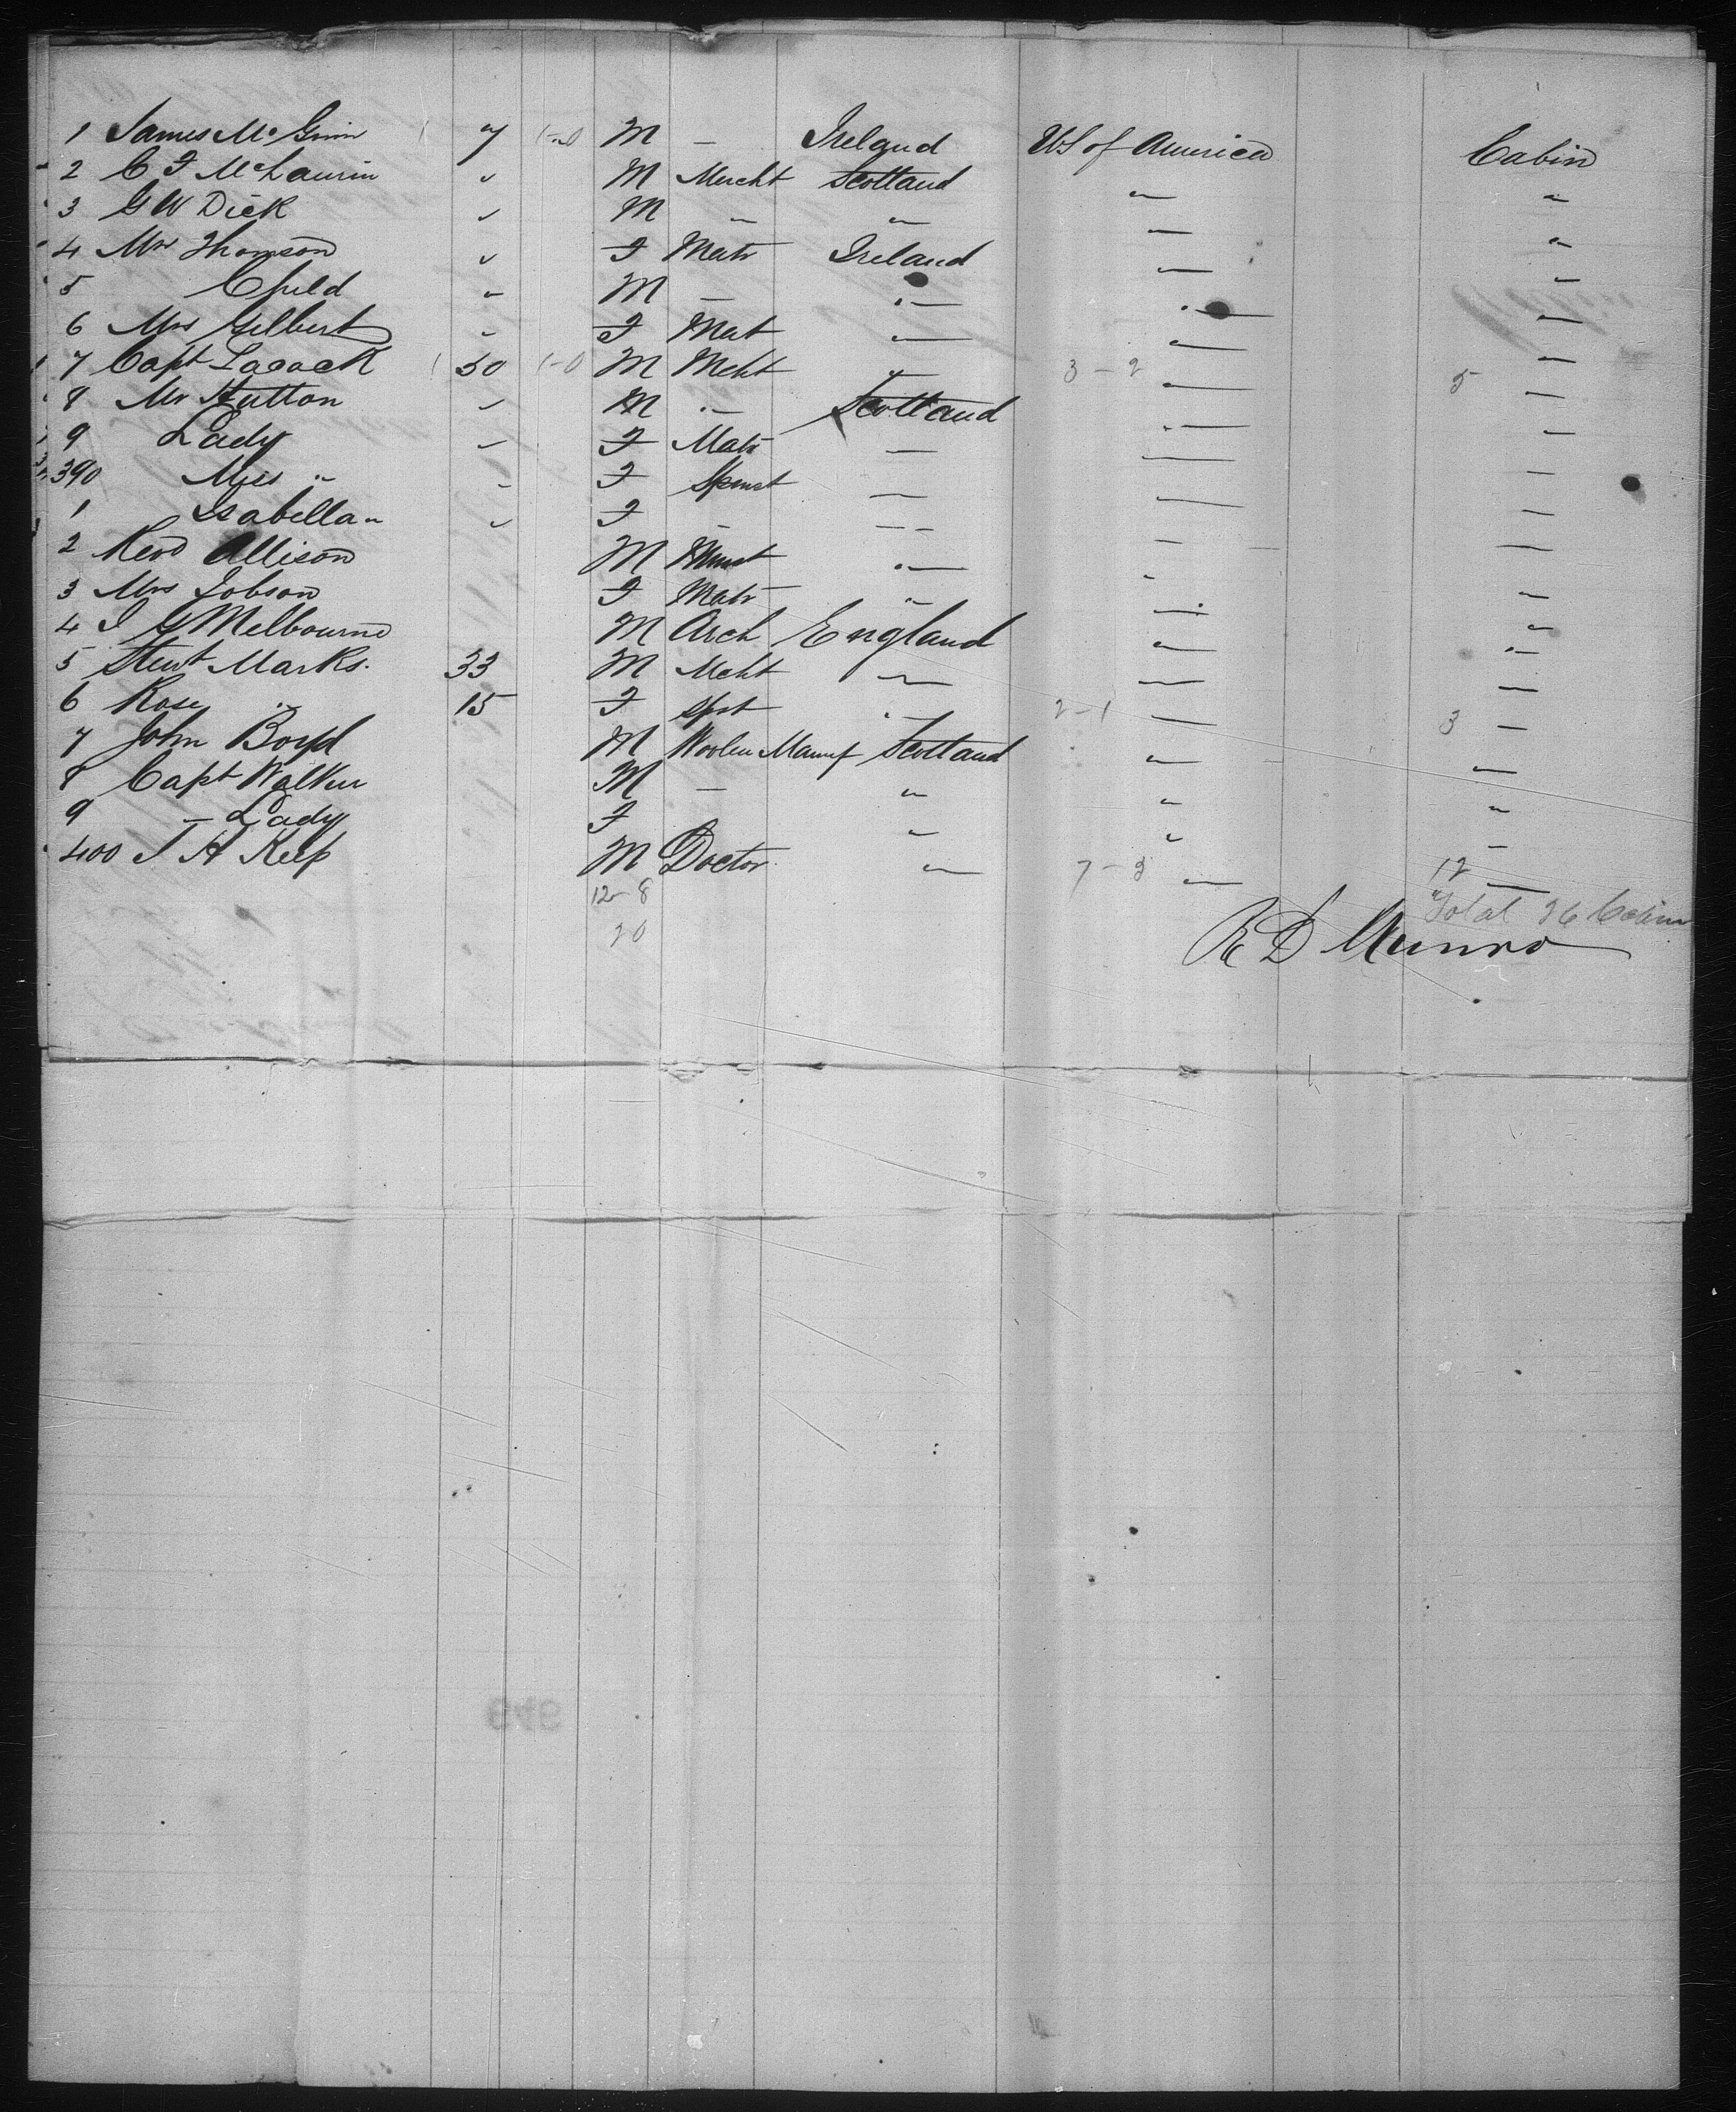 1 James McGinn 7 M — Ireland U S of America Cabin
2 C F McLaurin " M Mercht Scotland " "
3 G W Dick " M " " " "
4 Mrs Thomson " F Matr Ireland " "
5 Child " M — " " "
6 Mrs Gilbert " F Mat " " "
7 Capt 30 M Mcht " 3-2 " 5 "
8 Mr Hutton " M " Scotland " "
9 Lady " F Matr " " "
390 Miss " " F Spinst " " "
1 Isabella " " F — " " "
2 Revd Allison M Minst " " "
3 Mrs Jobson F Matr " " "
4 J G Melbourne M Arch England " "
5 Stewt Marks. 33 M Mcht " " "
6 Rose " 15 F Spst " 2-1 " 3 "
7 John Boyd M Woolen Manuf Scotland " "
8 Capt Walker M — " " "
9 — Lady F " " "
400 J H Keep M Doctor " 7-3 " 12 "
12-8 Total 26 Cabin
20 R D Munro
949